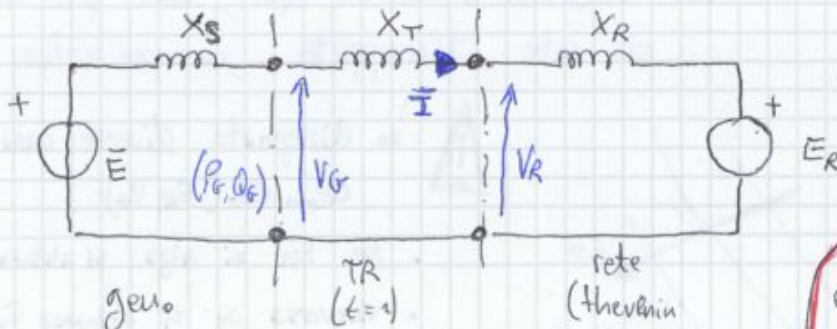 X_S X_T X_R
+ Ē (P_G, Q_G) V_G Ī V_R + E_R
gen. TR rete
(t=1) (thevenin